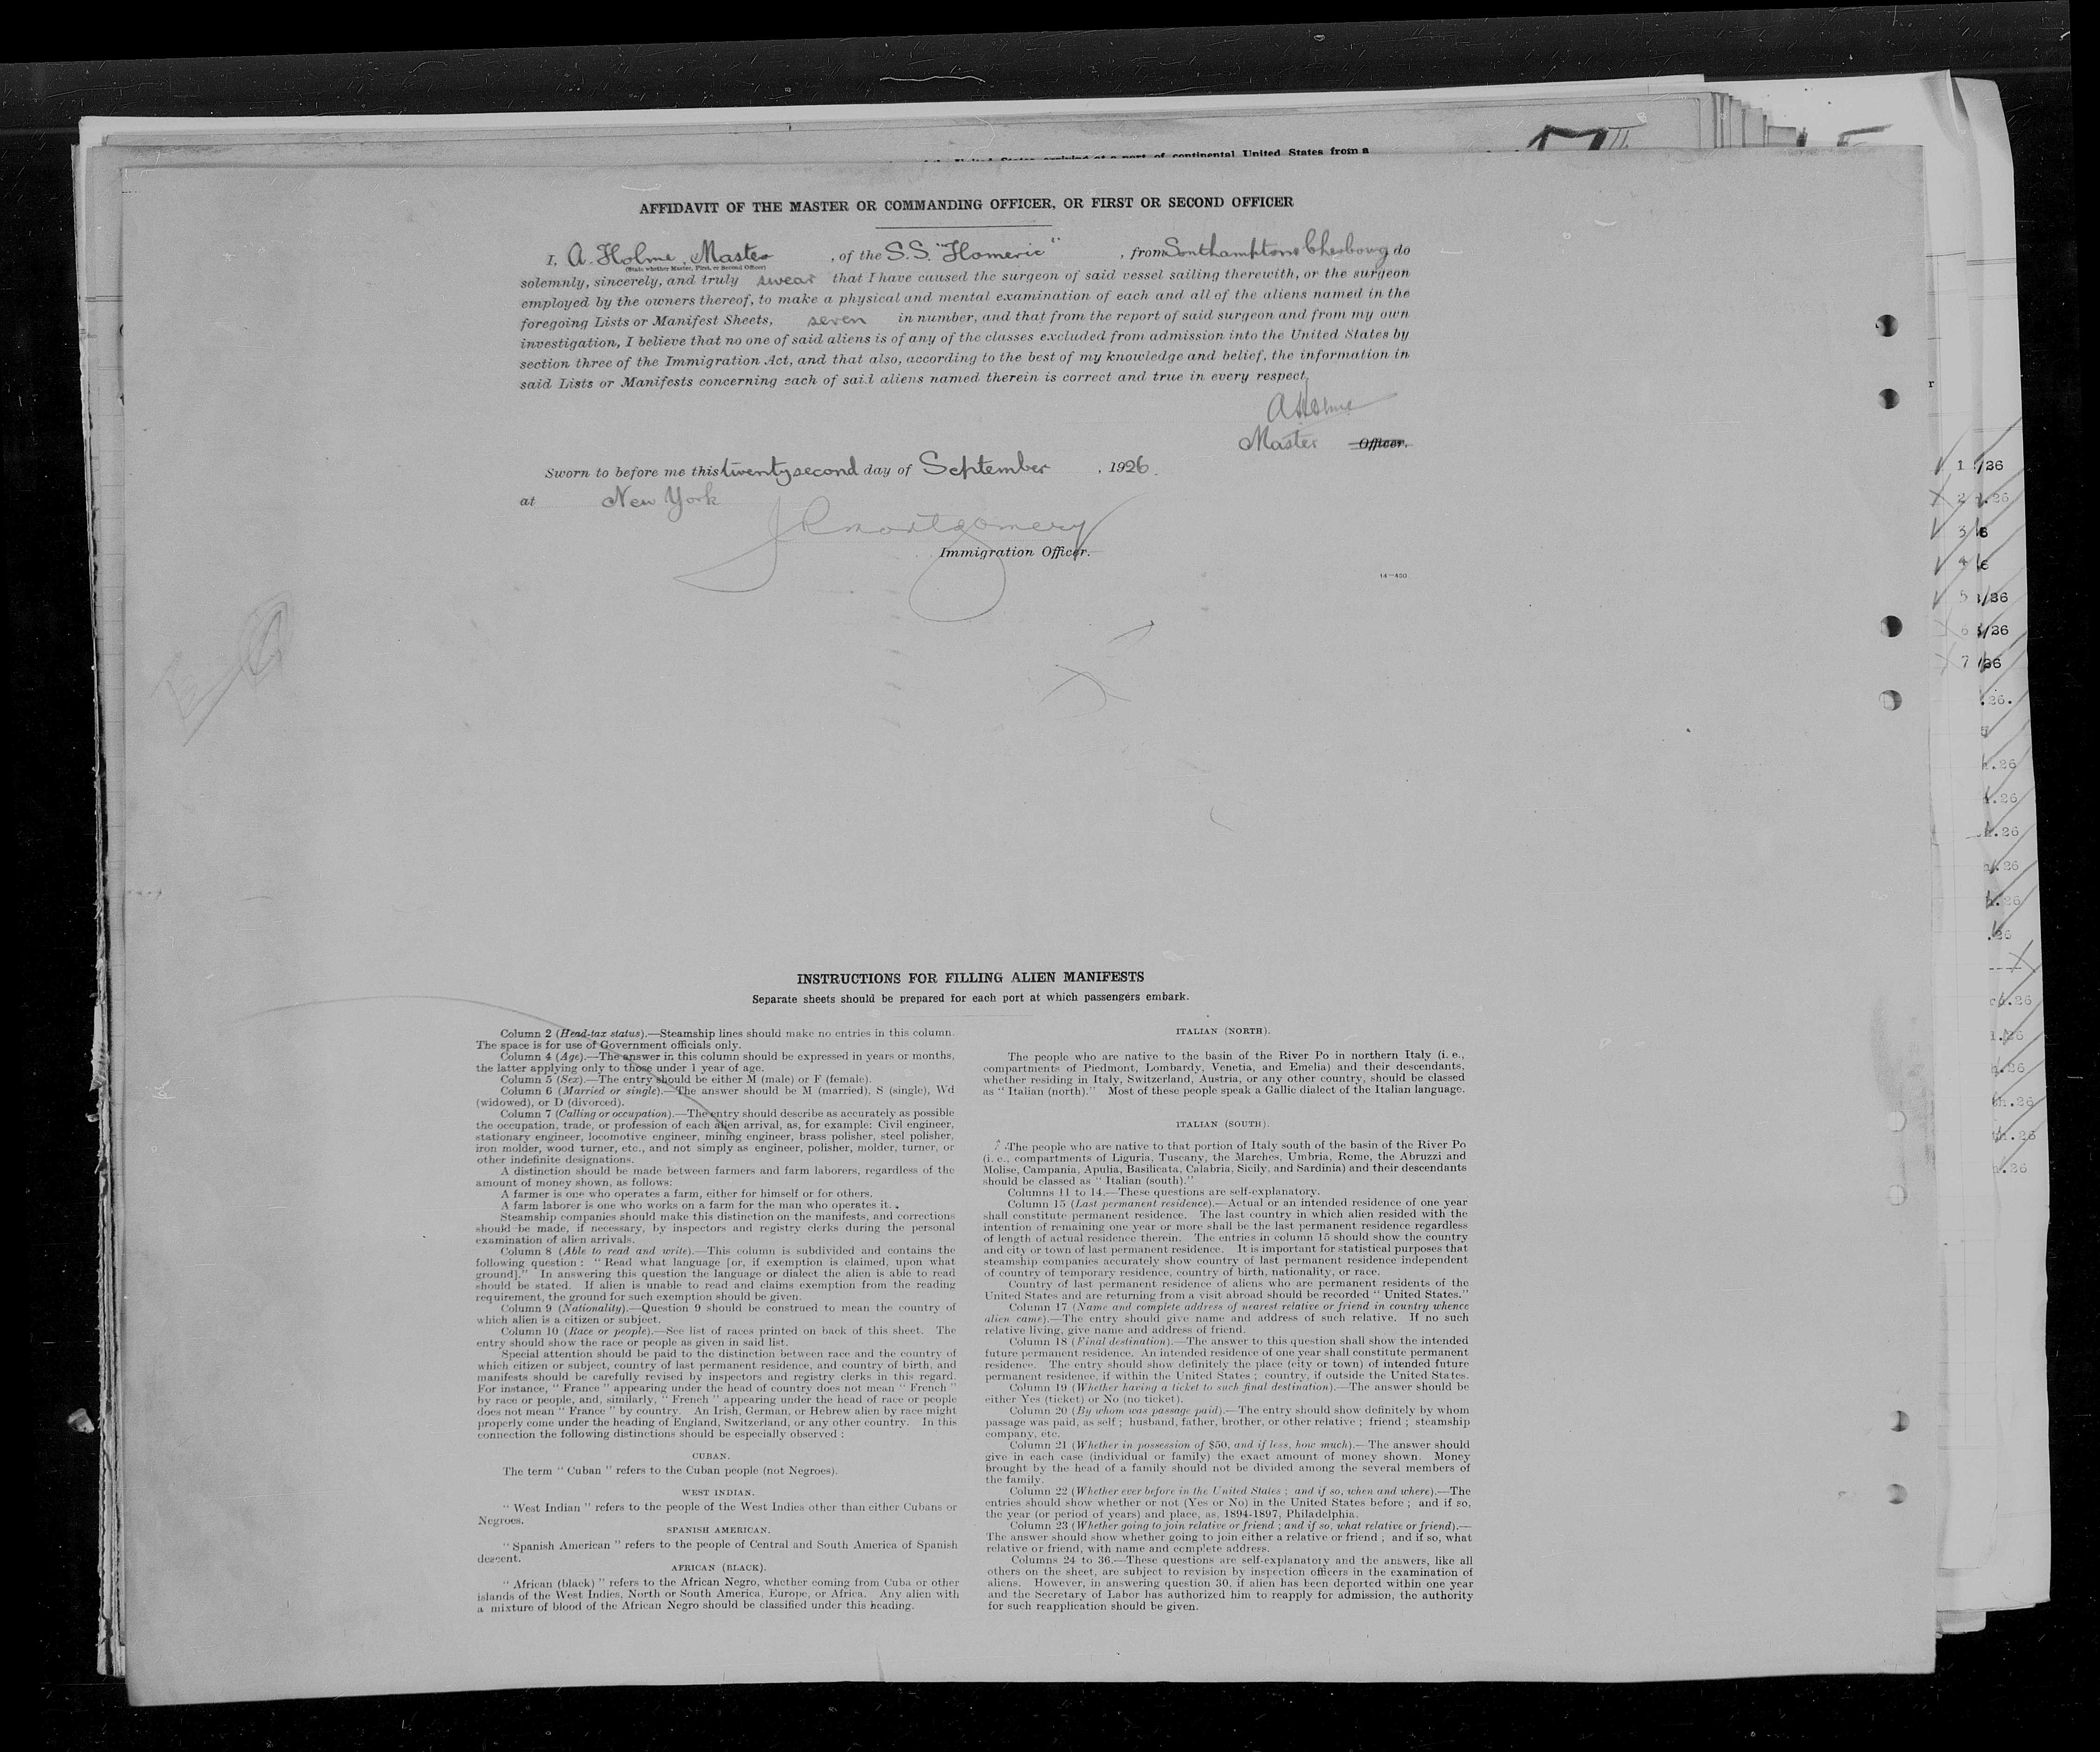 continental United States from a
AFFIDAVIT OF THE MASTER OR COMMANDING OFFICER, OR FIRST OR SECOND OFFICER
I, A. Holme, Master, of the S.S. "Homeric", from Southampton & Cherbourg, do
(State whether Master, First, or Second Officer)
solemnly, sincerely, and truly swear that I have caused the surgeon of said vessel sailing therewith, or the surgeon
employed by the owners thereof, to make a physical and mental examination of each and all of the aliens named in the
foregoing Lists or Manifest Sheets, seven in number, and that from the report of said surgeon and from my own
investigation, I believe that no one of said aliens is of any of the classes excluded from admission into the United States by
section three of the Immigration Act, and that also, according to the best of my knowledge and belief, the information in
said Lists or Manifests concerning each of said aliens named therein is correct and true in every respect.
A Holme
Master Officer.
Sworn to before me this twenty second day of September, 1926.
at New York
J R Montgomery
Immigration Officer.
14—430
INSTRUCTIONS FOR FILLING ALIEN MANIFESTS
Separate sheets should be prepared for each port at which passengers embark.
Column 2 (Head-tax status).—Steamship lines should make no entries in this column.
The space is for use of Government officials only.
Column 4 (Age).—The answer in this column should be expressed in years or months,
the latter applying only to those under 1 year of age.
Column 5 (Sex).—The entry should be either M (male) or F (female).
Column 6 (Married or single).—The answer should be M (married), S (single), Wd
(widowed), or D (divorced).
Column 7 (Calling or occupation).—The entry should describe as accurately as possible
the occupation, trade, or profession of each alien arrival, as, for example: Civil engineer,
stationary engineer, locomotive engineer, mining engineer, brass polisher, steel polisher,
iron molder, wood turner, etc., and not simply as engineer, polisher, molder, turner, or
other indefinite designations.
A distinction should be made between farmers and farm laborers, regardless of the
amount of money shown, as follows:
A farmer is one who operates a farm, either for himself or for others.
A farm laborer is one who works on a farm for the man who operates it.
Steamship companies should make this distinction on the manifests, and corrections
should be made, if necessary, by inspectors and registry clerks during the personal
examination of alien arrivals.
Column 8 (Able to read and write).—This column is subdivided and contains the
following question: "Read what language [or, if exemption is claimed, upon what
ground]." In answering this question the language or dialect the alien is able to read
should be stated. If alien is unable to read and claims exemption from the reading
requirement, the ground for such exemption should be given.
Column 9 (Nationality).—Question 9 should be construed to mean the country of
which alien is a citizen or subject.
Column 10 (Race or people).—See list of races printed on back of this sheet. The
entry should show the race or people as given in said list.
Special attention should be paid to the distinction between race and the country of
which citizen or subject, country of last permanent residence, and country of birth, and
manifests should be carefully revised by inspectors and registry clerks in this regard.
For instance, "France" appearing under the head of country does not mean "French"
by race or people, and, similarly, "French" appearing under the head of race or people
does not mean "France" by country. An Irish, German, or Hebrew alien by race might
properly come under the heading of England, Switzerland, or any other country. In this
connection the following distinctions should be especially observed:
CUBAN.
The term "Cuban" refers to the Cuban people (not Negroes).
WEST INDIAN.
"West Indian" refers to the people of the West Indies other than either Cubans or
Negroes.
SPANISH AMERICAN.
"Spanish American" refers to the people of Central and South America of Spanish
descent.
AFRICAN (BLACK).
"African (black)" refers to the African Negro, whether coming from Cuba or other
islands of the West Indies, North or South America, Europe, or Africa. Any alien with
a mixture of blood of the African Negro should be classified under this heading.
ITALIAN (NORTH).
The people who are native to the basin of the River Po in northern Italy (i. e.,
compartments of Piedmont, Lombardy, Venetia, and Emelia) and their descendants,
whether residing in Italy, Switzerland, Austria, or any other country, should be classed
as "Italian (north)." Most of these people speak a Gallic dialect of the Italian language.
ITALIAN (SOUTH).
The people who are native to that portion of Italy south of the basin of the River Po
(i. e., compartments of Liguria, Tuscany, the Marches, Umbria, Rome, the Abruzzi and
Molise, Campania, Apulia, Basilicata, Calabria, Sicily, and Sardinia) and their descendants
should be classed as "Italian (south)."
Columns 11 to 14.—These questions are self-explanatory.
Column 15 (Last permanent residence).—Actual or an intended residence of one year
shall constitute permanent residence. The last country in which alien resided with the
intention of remaining one year or more shall be the last permanent residence regardless
of length of actual residence therein. The entries in column 15 should show the country
and city or town of last permanent residence. It is important for statistical purposes that
steamship companies accurately show country of last permanent residence independent
of country of temporary residence, country of birth, nationality, or race.
Country of last permanent residence of aliens who are permanent residents of the
United States and are returning from a visit abroad should be recorded "United States."
Column 17 (Name and complete address of nearest relative or friend in country whence
alien came).—The entry should give name and address of such relative. If no such
relative living, give name and address of friend.
Column 18 (Final destination).—The answer to this question shall show the intended
future permanent residence. An intended residence of one year shall constitute permanent
residence. The entry should show definitely the place (city or town) of intended future
permanent residence, if within the United States; country, if outside the United States.
Column 19 (Whether having a ticket to such final destination).—The answer should be
either Yes (ticket) or No (no ticket).
Column 20 (By whom was passage paid).—The entry should show definitely by whom
passage was paid, as self; husband, father, brother, or other relative; friend; steamship
company, etc.
Column 21 (Whether in possession of $50, and if less, how much).—The answer should
give in each case (individual or family) the exact amount of money shown. Money
brought by the head of a family should not be divided among the several members of
the family.
Column 22 (Whether ever before in the United States; and if so, when and where).—The
entries should show whether or not (Yes or No) in the United States before; and if so,
the year (or period of years) and place, as, 1894-1897, Philadelphia.
Column 23 (Whether going to join relative or friend; and if so, what relative or friend).—
The answer should show whether going to join either a relative or friend; and if so, what
relative or friend, with name and complete address.
Columns 24 to 36.—These questions are self-explanatory and the answers, like all
others on the sheet, are subject to revision by inspection officers in the examination of
aliens. However, in answering question 30, if alien has been deported within one year
and the Secretary of Labor has authorized him to reapply for admission, the authority
for such reapplication should be given.
1 /26
2 .26
3
4
5 /26
6 /26
7 /26